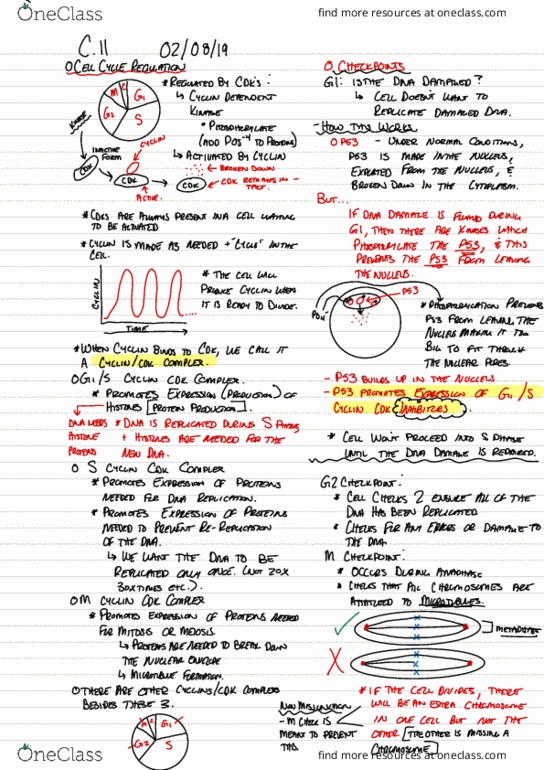 OneClass
find more resources at oneclass.com
C.11 02/08/19
O CELL CYCLE REGULATION
M
C
G1
G2
S
* REGULATED BY CDK'S:
↳ CYCLIN DEPENDENT
KINASE
• PHOSPHORYLATE
(ADD PO3-4 TO PROTEINS)
↳ ACTIVATED BY CYCLIN
KINASE
INACTIVE
FORM
CYCLIN
CDK
CDK
ACTIVE
CDK
← BROKEN DOWN
← CDK REMAINS IN-
TACT.
* CDKS ARE ALWAYS PRESENT IN A CELL WAITING
TO BE ACTIVATED
* CYCLIN IS MADE AS NEEDED + "CYCLES" IN THE
CELL.
CYCLIN
TIME
* THE CELL WILL
PRODUCE CYCLIN WHEN
IT IS READY TO DIVIDE.
* WHEN CYCLIN BINDS TO CDK, WE CALL IT
A CYCLIN/CDK COMPLEX.
O G1/S CYCLIN CDK COMPLEX.
* PROMOTES EXPRESSION (PRODUCTION) OF
HISTONES [PROTEIN PRODUCTION].
DNA NEEDS
HISTONE
PROTEINS
* DNA IS REPLICATED DURING S PHASE
+ HISTONES ARE NEEDED FOR THE
NEW DNA.
O S CYCLIN CDK COMPLEX
* PROMOTES EXPRESSION OF PROTEINS
NEEDED FOR DNA REPLICATION.
* PROMOTES EXPRESSION OF PROTEINS
NEEDED TO PREVENT RE-REPLICATION
OF THE DNA.
↳ WE WANT THE DNA TO BE
REPLICATED ONLY ONCE. (NOT 20X
30X TIMES ETC.).
O M CYCLIN CDK COMPLEX
* PROMOTES EXPRESSION OF PROTEINS NEEDED
FOR MITOSIS OR MEIOSIS.
↳ PROTEINS ARE NEEDED TO BREAK DOWN
THE NUCLEAR ENVELOPE
↳ MICROTUBULE FORMATION.
O THERE ARE OTHER CYCLINS/CDK COMPLEXES
BESIDES THESE 3.
M
C
G1
G2
S
O CHECKPOINTS
G1: IS THE DNA DAMAGED?
↳ CELL DOESN'T WANT TO
REPLICATE DAMAGED DNA.
- HOW THIS WORKS
O P53 - UNDER NORMAL CONDITIONS,
P53 IS MADE IN THE NUCLEUS,
EXPORTED FROM THE NUCLEUS, &
BROKEN DOWN IN THE CYTOPLASM.
BUT...
IF DNA DAMAGE IS FOUND DURING
G1, THEN THERE ARE KINASES WHICH
PHOSPHORYLATE THE P53, & THIS
PREVENTS THE P53 FROM LEAVING
THE NUCLEUS.
P53
* PHOSPHORYLATION PREVENTS
P53 FROM LEAVING THE
NUCLEUS MAKING IT TOO
BIG TO FIT THROUGH
THE NUCLEAR PORES.
- P53 BUILDS UP IN THE NUCLEUS
- P53 PROMOTES EXPRESSION OF G1/S
CYCLIN CDK INHIBITERS.
* CELL WON'T PROCEED INTO S PHASE
UNTIL THE DNA DAMAGE IS REPAIRED.
G2 CHECKPOINT:
* CELL CHECKS 2 ENSURE ALL OF THE
DNA HAS BEEN REPLICATED
* CHECKS FOR ANY ERRORS OR DAMAGE TO
THE DNA
M CHECKPOINT:
* OCCURS DURING ANAPHASE
* CHECKS THAT ALL CHROMOSOMES ARE
ATTATCHED TO MICROTUBULES.
METAPHASE
NON DISJUNCTION
- M CHECK IS
MEANT TO PREVENT
THIS
* IF THE CELL DIVIDES, THERE
WILL BE AN EXTRA CHROMOSOME
IN ONE CELL BUT NOT THE
OTHER [THE OTHER IS MISSING A
CHROMOSOME]
OneClass
find more resources at oneclass.com